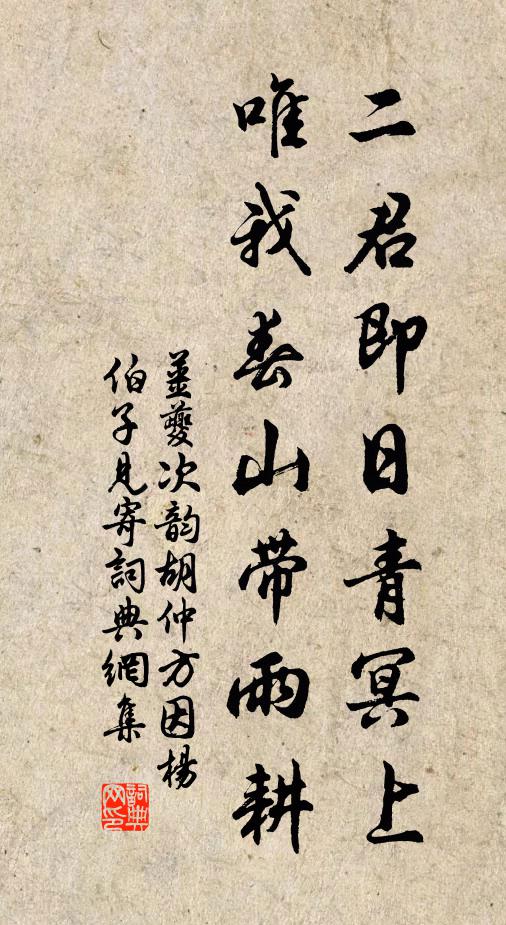 二君即日青冥上
唯我春山带雨耕
姜夔次韵胡仲方因楊
伯子見寄詞典網集
詞典
网印